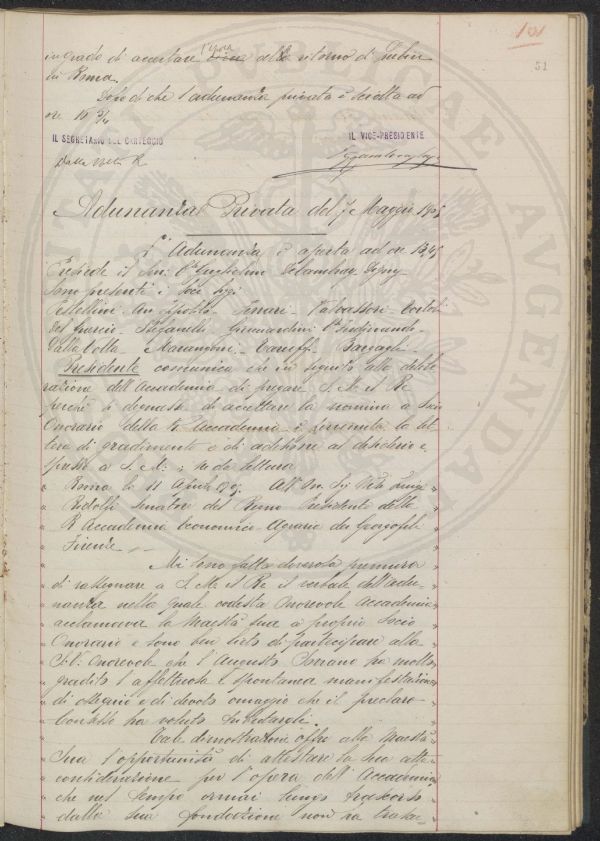 101
51
in grado di accertare l'epoca della ritorno di
in Roma.
Dopo di che l'adunanza privata è sciolta ad
ore 15 3/4
IL SEGRETARIO DEL CARTEGGIO IL VICE-PRESIDENTE
Dalla Volta R
Adunanza Privata del 7 Maggio 1905
L'Adunanza è aperta ad ore 13,45
Presiede il Sig. Guglielmo Cambray Digny
Sono presenti i Soci Sigi
Pestellini Ippolito - Ferrari - Valvassori -
Del Guercio - Stefanelli -
Dalla Volta - Marangoni - Caruso - Bargagli -
Presidente comunica che in seguito alla delibe
razione dell'Accademia di pregare S. M. il Re
perchè si degnasse di accettare la nomina a Socio
Onorario della R. Accademia è pervenuta la let
tera di gradimento e di adesione al desiderio e
spresso a S. M.; ne dà lettura
" Roma li 11 Aprile 1905. All'On. Sig. Luigi "
" Ridolfi Senatore del Regno Presidente della "
" R Accademia Economico Agraria dei Georgofili "
" Firenze "
" Mi sono fatta doverosa premura "
" di rassegnare a S. M. il Re il verbale dell'adu- "
" nanza nella quale codesta Onorevole Accademia "
" acclamava la Maestà Sua a proprio Socio "
" Onorario e sono ben lieto di partecipare alla "
" S. V. Onorevole che l'Augusto Sovrano ha molto "
" gradito l'affettuosa e spontanea manifestazione "
" di ossequio e di devoto omaggio che il preclaro "
" ha voluto tributargli. "
" Tale dimostrazione offre alla Maestà "
" Sua l'opportunità di attestare la sua alta "
" considerazione per l'opera dell'Accademia "
" che nel tempo ormai lungo trascorso "
" dalla sua fondazione non ha trala- "